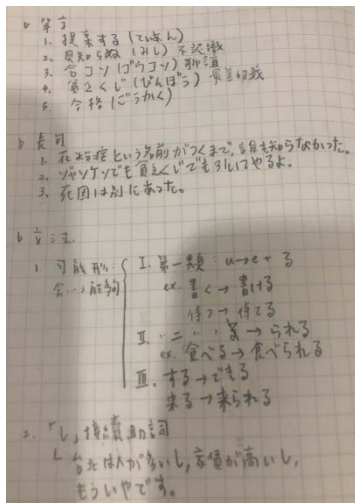 單字
1. 提案する (ていあん)
2. 見知らぬ (みし) 不認識
3. 合コン (ゴウコン) 聯誼
4. 貧乏くじ (びんぼう)
5. 合格 (ごうかく)
長句
1. 花粉症という名前がつくまで, 誰も知らなかった。
2. ジャンケンでも貧乏くじでも引いてやるよ。
3. 死因は別にあった。
文法
1. 可能形: 会… 能夠
I. 第一類: u→e+る
ex. 書く→書ける
待つ→待てる
II. 〃二〃 る→られる
ex. 食べる→食べられる
III. する→できる
来る→来られる
2. 「し」接續助詞
台北は人が多いし, 家賃が高いし,
もういやです。